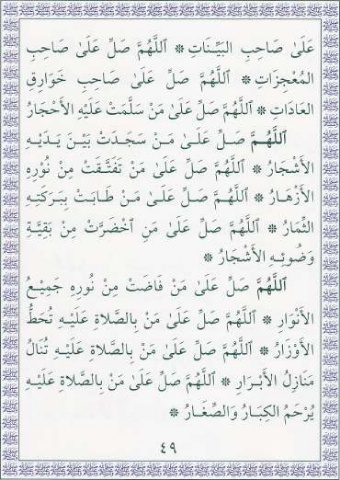 عَلَىٰ صَاحِبِ البَيِّنَاتِ * اَللَّهُمَّ صَلِّ عَلَىٰ صَاحِبِ
المُعْجِزَاتِ * اَللَّهُمَّ صَلِّ عَلَىٰ صَاحِبِ خَوَارِقِ
العَادَاتِ * اَللَّهُمَّ صَلِّ عَلَىٰ مَنْ سَلَّمَتْ عَلَيْهِ الأَحْجَارُ
اَللَّهُمَّ صَلِّ عَلَىٰ مَنْ سَجَدَتْ بَيْنَ يَدَيْهِ
الأَشْجَارُ * اَللَّهُمَّ صَلِّ عَلَىٰ مَنْ تَفَتَّقَتْ مِنْ نُورِهِ
الأَزْهَارُ * اَللَّهُمَّ صَلِّ عَلَىٰ مَنْ طَابَتْ بِبَرَكَتِهِ
الثِّمَارُ * اَللَّهُمَّ صَلِّ عَلَىٰ مَنِ اخْضَرَّتْ مِنْ بَقِيَّةِ
وَضُوئِهِ الأَشْجَارُ *
اَللَّهُمَّ صَلِّ عَلَىٰ مَنْ فَاضَتْ مِنْ نُورِهِ جَمِيعُ
الأَنْوَارِ * اَللَّهُمَّ صَلِّ عَلَىٰ مَنْ بِالصَّلاةِ عَلَيْهِ تُحَطُّ
الأَوْزَارُ * اَللَّهُمَّ صَلِّ عَلَىٰ مَنْ بِالصَّلاةِ عَلَيْهِ تُنَالُ
مَنَازِلُ الأَبْرَارِ * اَللَّهُمَّ صَلِّ عَلَىٰ مَنْ بِالصَّلاةِ عَلَيْهِ
يُرْحَمُ الكِبَارُ وَالصِّغَارُ *
٤٩